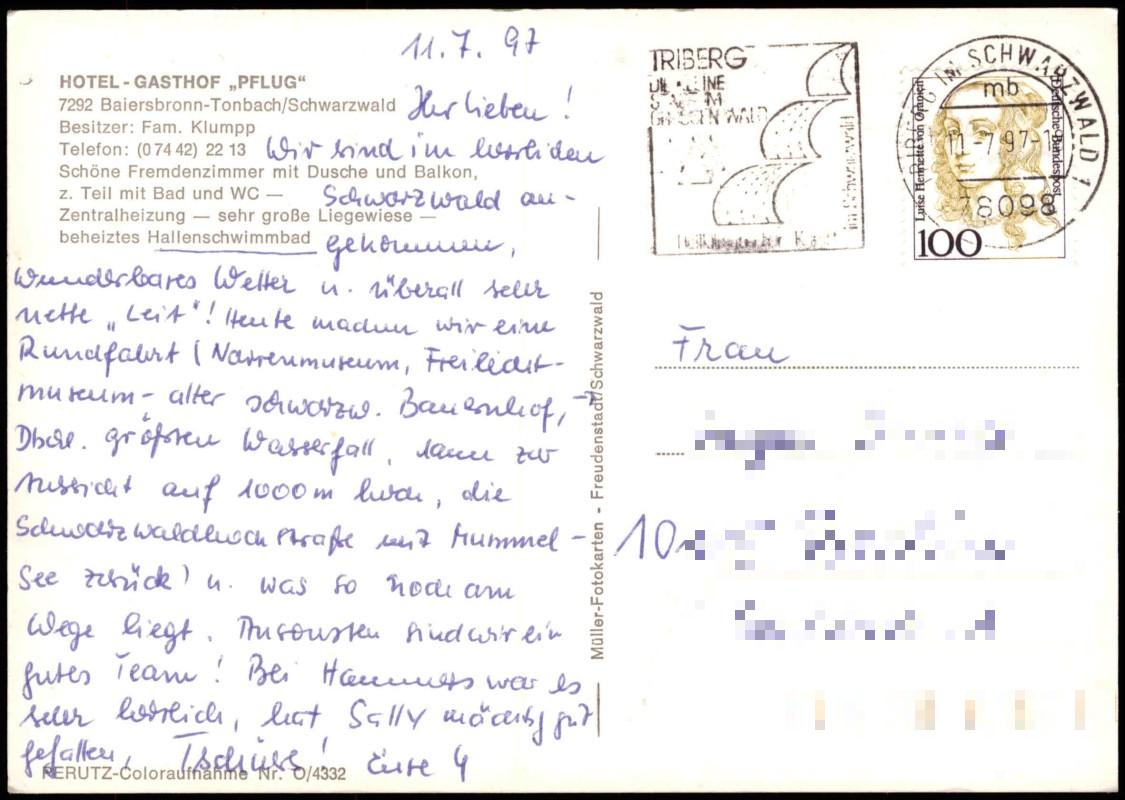 11.7.97
HOTEL-GASTHOF „PFLUG“
7292 Baiersbronn-Tonbach/Schwarzwald
Besitzer: Fam. Klumpp
Telefon: (0 74 42) 22 13
Schöne Fremdenzimmer mit Dusche und Balkon,
z. Teil mit Bad und WC —
Zentralheizung — sehr große Liegewiese —
beheiztes Hallenschwimmbad
Ihr Lieben!
Wir sind im herrlichen
Schwarzwald an-
gekommen,
wunderbares Wetter u. überall sehr
nette „Leit“! Heute machen wir eine
Rundfahrt (Narrenmuseum, Freilicht-
museum - alter schwarzw. Bauernhof, →
Dtschl. größten Wasserfall, dann zur
Aussicht auf 1000m hoch, die
Schwarzwaldhochstraße mit Mummel-
See zurück) u. was so noch am
Wege liegt. Ansonsten sind wir ein
gutes Team! Bei Hammers war es
sehr herrlich, hat Sally mächtig gut
gefallen. Tschüss! Eure 4
PERUTZ-Coloraufnahme Nr. O/4332
Müller-Fotokarten - Freudenstadt/Schwarzwald
TRIBERG
DIE KLEINE
STADT IM
GROSSEN WALD
im Schwarzwald
TRIBERG IM SCHWARZWALD 1
mb
11.-7.97-1
78098
Luise Henriette von Oranien
Deutsche Bundespost
100
Frau
10